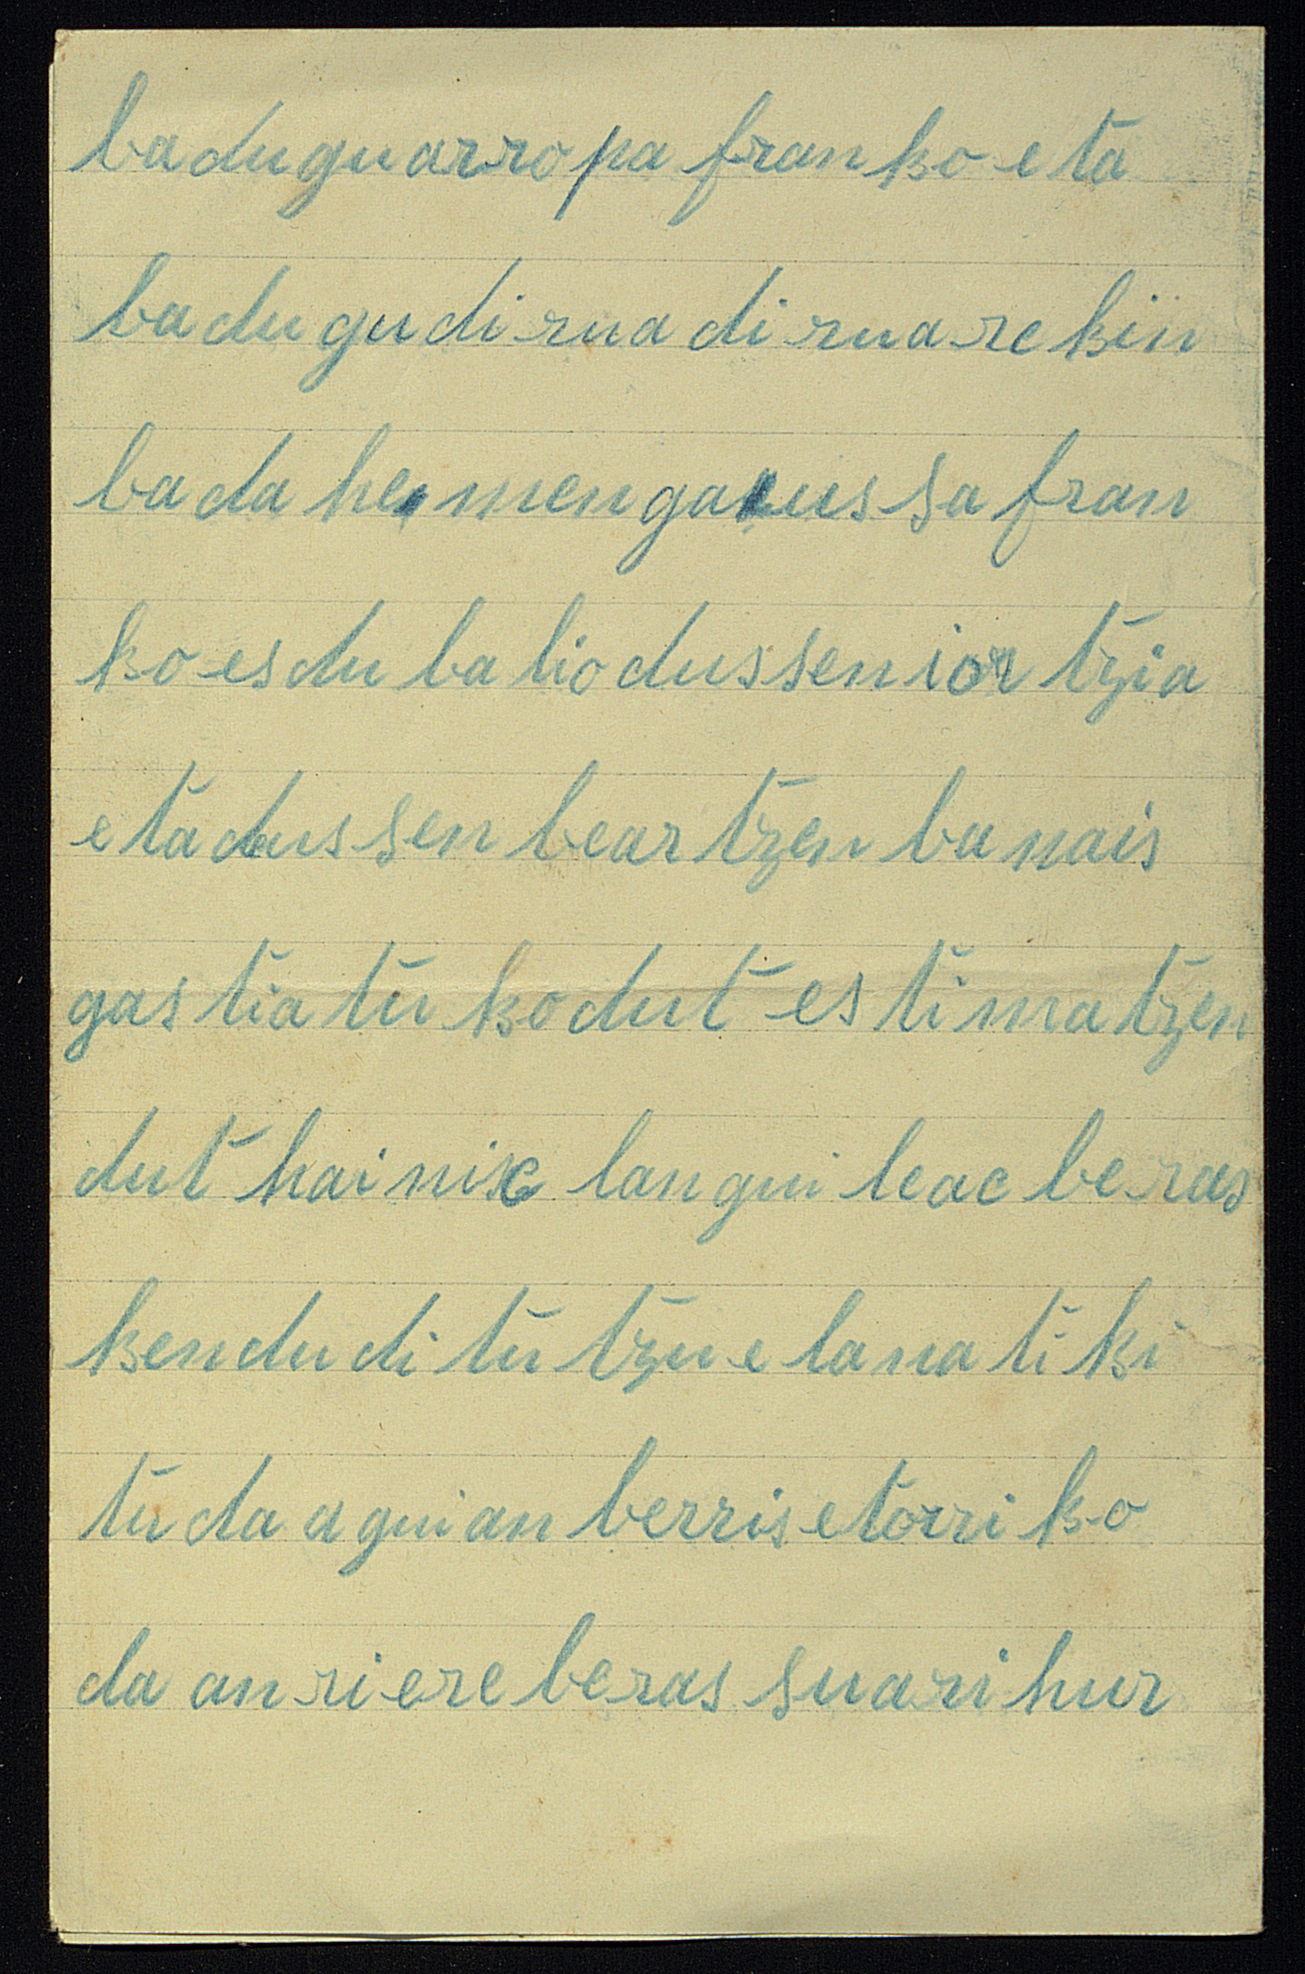 baduguarropa franko eta
badugudirua diruarekin
bada hemengaussa fran
ko esdu baliodussenior tzia
etadussen beartzen banais
gastiatu kodut estimatzen
dut hainic languileac beras
kenduditutzue lana tiki
tuda aguian berris etorriko
da anriere beras suari hur